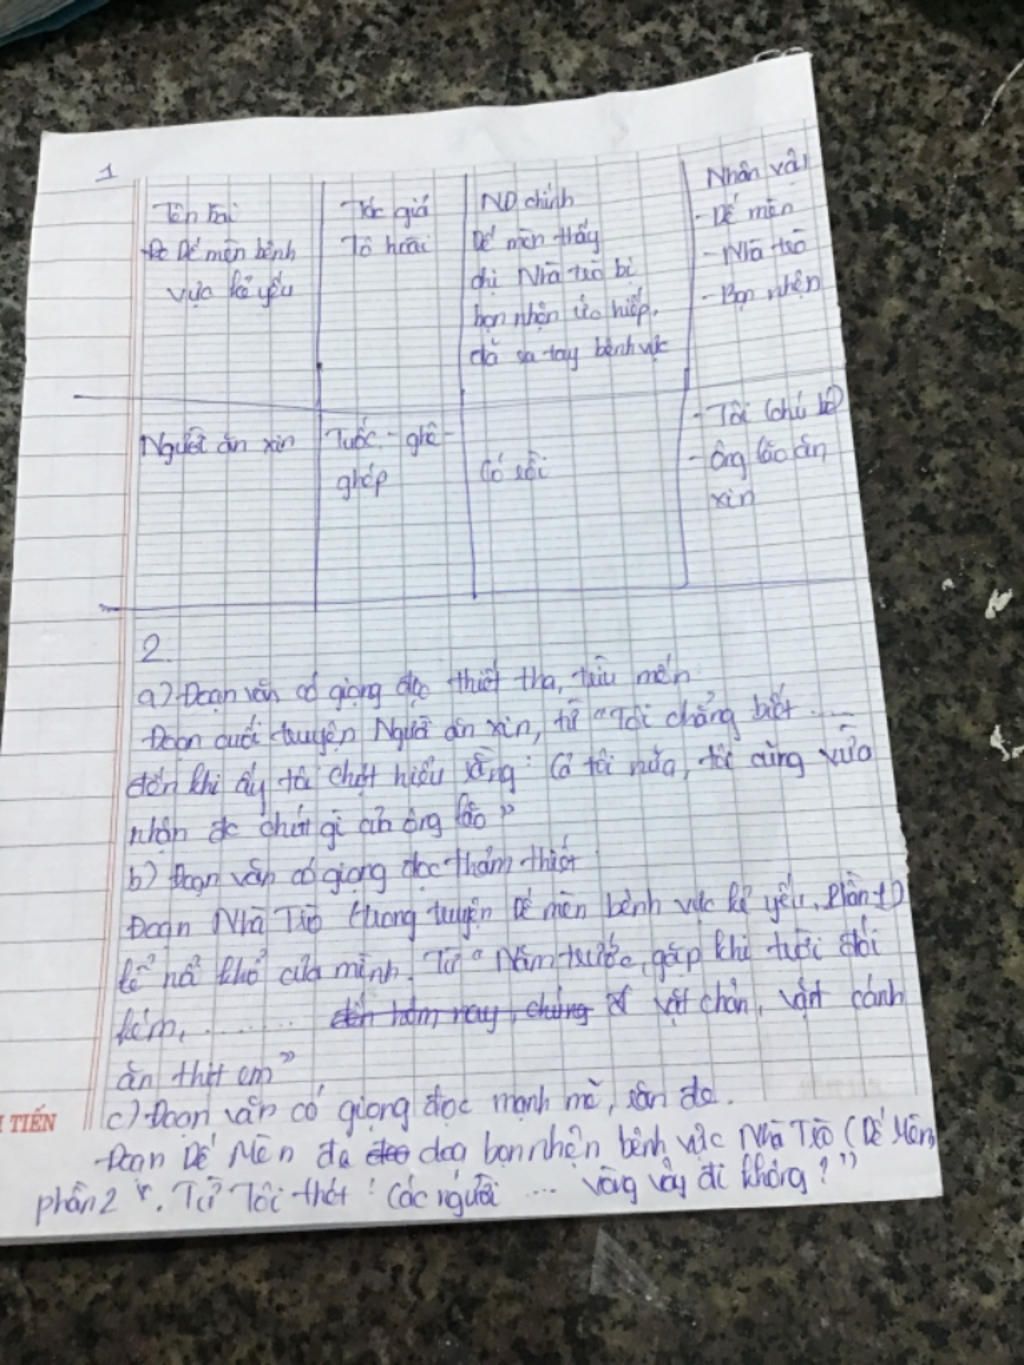 1
Tên bài
Tác giả
ND chính
Nhân vật
Dế mèn bênh
vực kẻ yếu
Tô hoài
Dế mèn thấy
chị Nhà trò bị
bọn nhện ức hiếp,
đã ra tay bênh vực
- Dế mèn
- Nhà trò
- Bọn nhện
Người ăn xin
Tuốc - ghê -
ghép
Có rồi
- Tôi (chú bé)
- Ông lão ăn
xin
2.
a) Đoạn văn có giọng đọc thiết tha, trìu mến.
Đoạn cuối truyện Người ăn xin, từ "Tôi chẳng biết ....
đến khi ấy tôi chợt hiểu rằng: Cả tôi nữa, tôi cũng vừa
nhận đc chút gì của ông lão"
b) Đoạn văn có giọng đọc thảm thiết
Đoạn Nhà Trò (trong truyện Dế mèn bênh vực kẻ yếu, phần 1)
kể nỗi khổ của mình. Từ "Năm trước, gặp khi trời đói
kém, ......... đến hôm nay, chúng vặt chân, vặt cánh
ăn thịt em"
c) Đoạn văn có giọng đọc mạnh mẽ, răn đe.
Đoạn Dế Mèn đã doạ bọn nhện bênh vực Nhà Trò (Dế Mèn,
phần 2". Từ Tôi thét: Các người .... vòng vây đi không?"
TIẾN